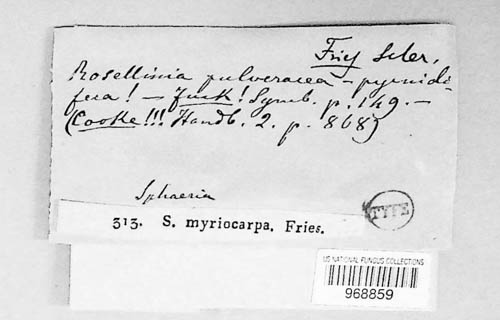 Fries Scler.
Rosellinia pulveracea – pycnidi-
fera! – Fuck! Symb. p. 149. –
(Cooke!!! Handb. 2. p. 868)
Sphaeria
313. S. myriocarpa. Fries.
TYPE
US NATIONAL FUNGUS COLLECTIONS
968859